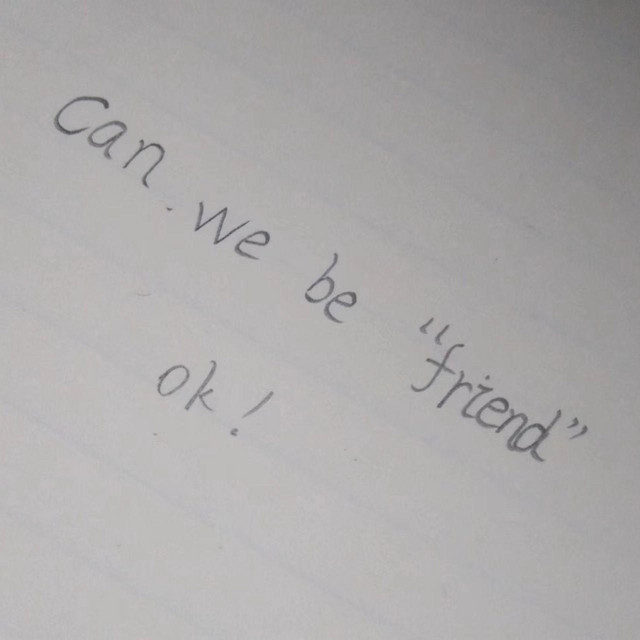 Can we be "friend"
ok!